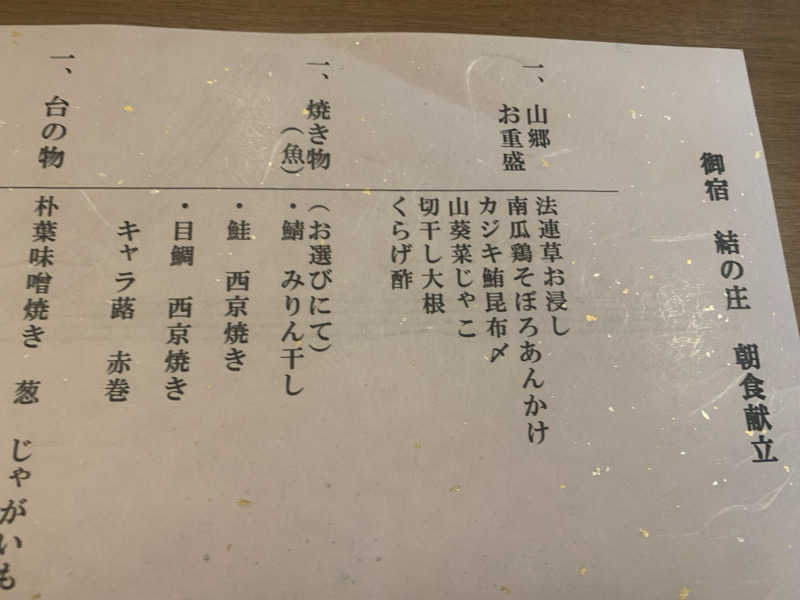 御宿 結の庄 朝食献立
一、山郷
お重盛
法連草お浸し
南瓜鶏そぼろあんかけ
カジキ鮪昆布〆
山葵菜じゃこ
切干し大根
くらげ酢
一、焼き物
（魚）
（お選びにて）
・鯖 みりん干し
・鮭 西京焼き
・目鯛 西京焼き
キャラ蕗 赤巻
一、台の物
朴葉味噌焼き 葱 じゃがいも